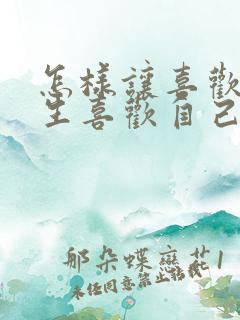 怎樣讓喜歡
生喜歡自己
那朵蝶戀花1
未任同意禁止转载